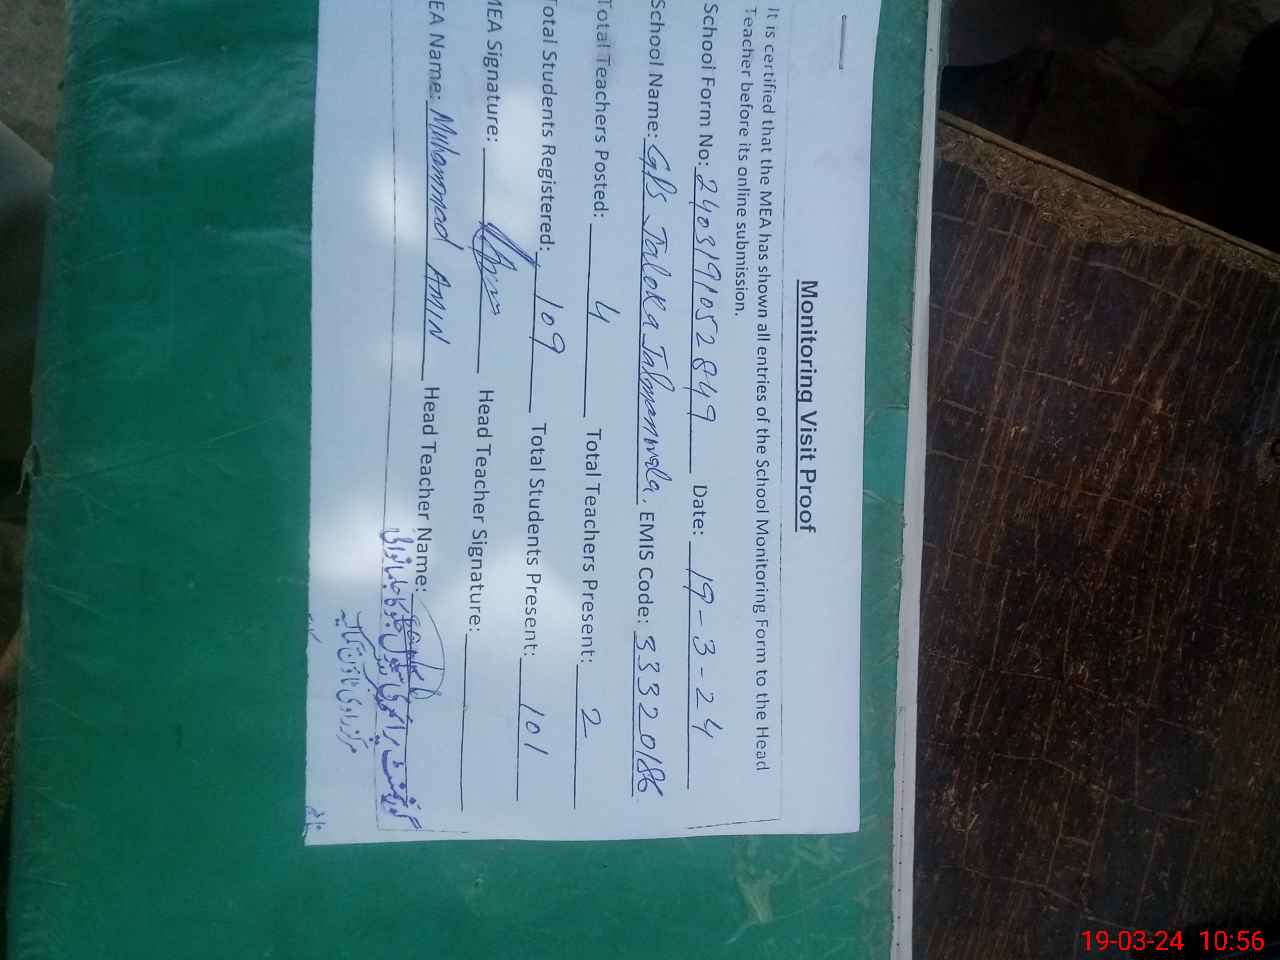 Monitoring Visit Proof
It is certified that the MEA has shown all entries of the School Monitoring Form to the Head
Teacher before its online submission.
School Form No: 2403191052849 Date: 19-3-24
School Name: GPS Jaloka Jalmanwala. EMIS Code: 33320186
Total Teachers Posted: 4 Total Teachers Present: 2
Total Students Registered: 109 Total Students Present: 101
MEA Signature: Head Teacher Signature:
EA Name: Muhammad AMIN Head Teacher Name:
گورنمنٹ پرائمری سکول
19-03-24 10:56